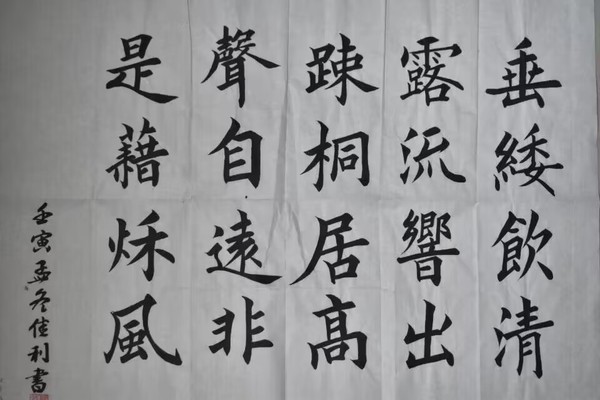 垂緌飲清
露流響出
踈桐居高
聲自遠非
是藉秌風
壬寅孟冬佳利書